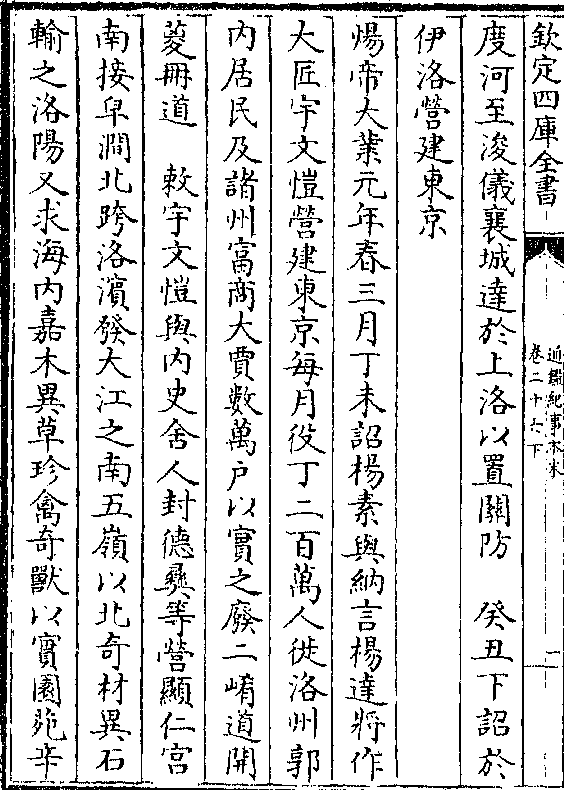 欽定四庫全書
通鑑紀事本末
卷二十六下
二
度河至浚儀襄城達於上洛以置關防　癸丑下詔於
伊洛營建東京
煬帝大業元年春三月丁未詔楊素與納言楊達將作
大匠宇文愷營建東京每月役丁二百萬人徙洛州郭
内居民及諸州富商大賈數萬户以實之廢二崤道開
葼冊道　敕宇文愷與内史舍人封德彝等營顯仁宫
南接皁澗北跨洛濱發大江之南五嶺以北奇材異石
輸之洛陽又求海内嘉木異草珍禽奇獸以實園苑辛